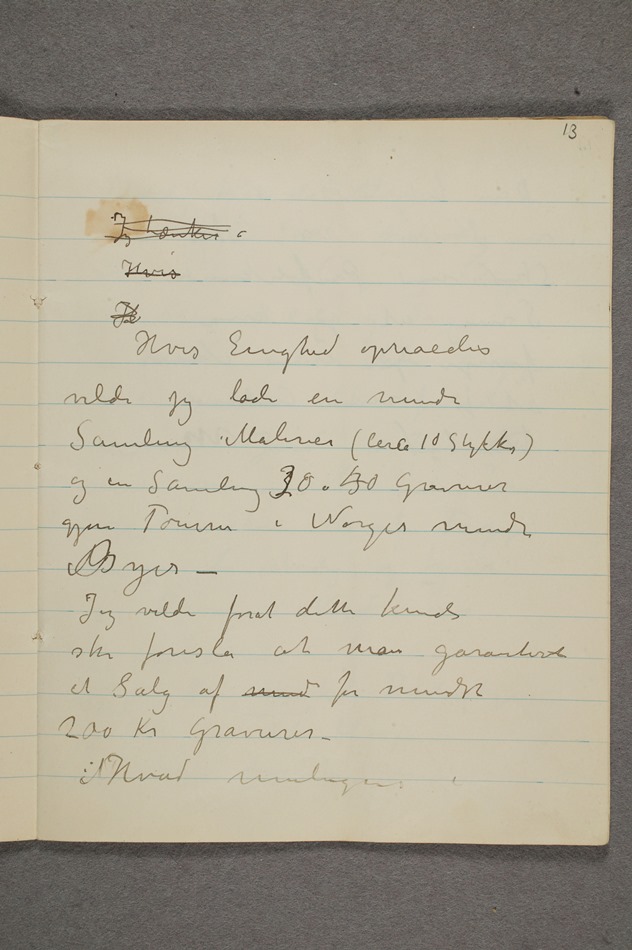 13
Jeg tænker i
Hvis
Je
Hvis Enighed opnaaedes
vilde jeg lade en mindre
Samling Malerier (circa 10 Stykker)
og en Samling 30 a 40 Gravurer
gjøre Tourne i Norges mindre
Byer –
Jeg vilde forat dette kunde
ske foresla at man garanterede
et Salg af mind for mindst
200 Kr Gravurer –
Hvad